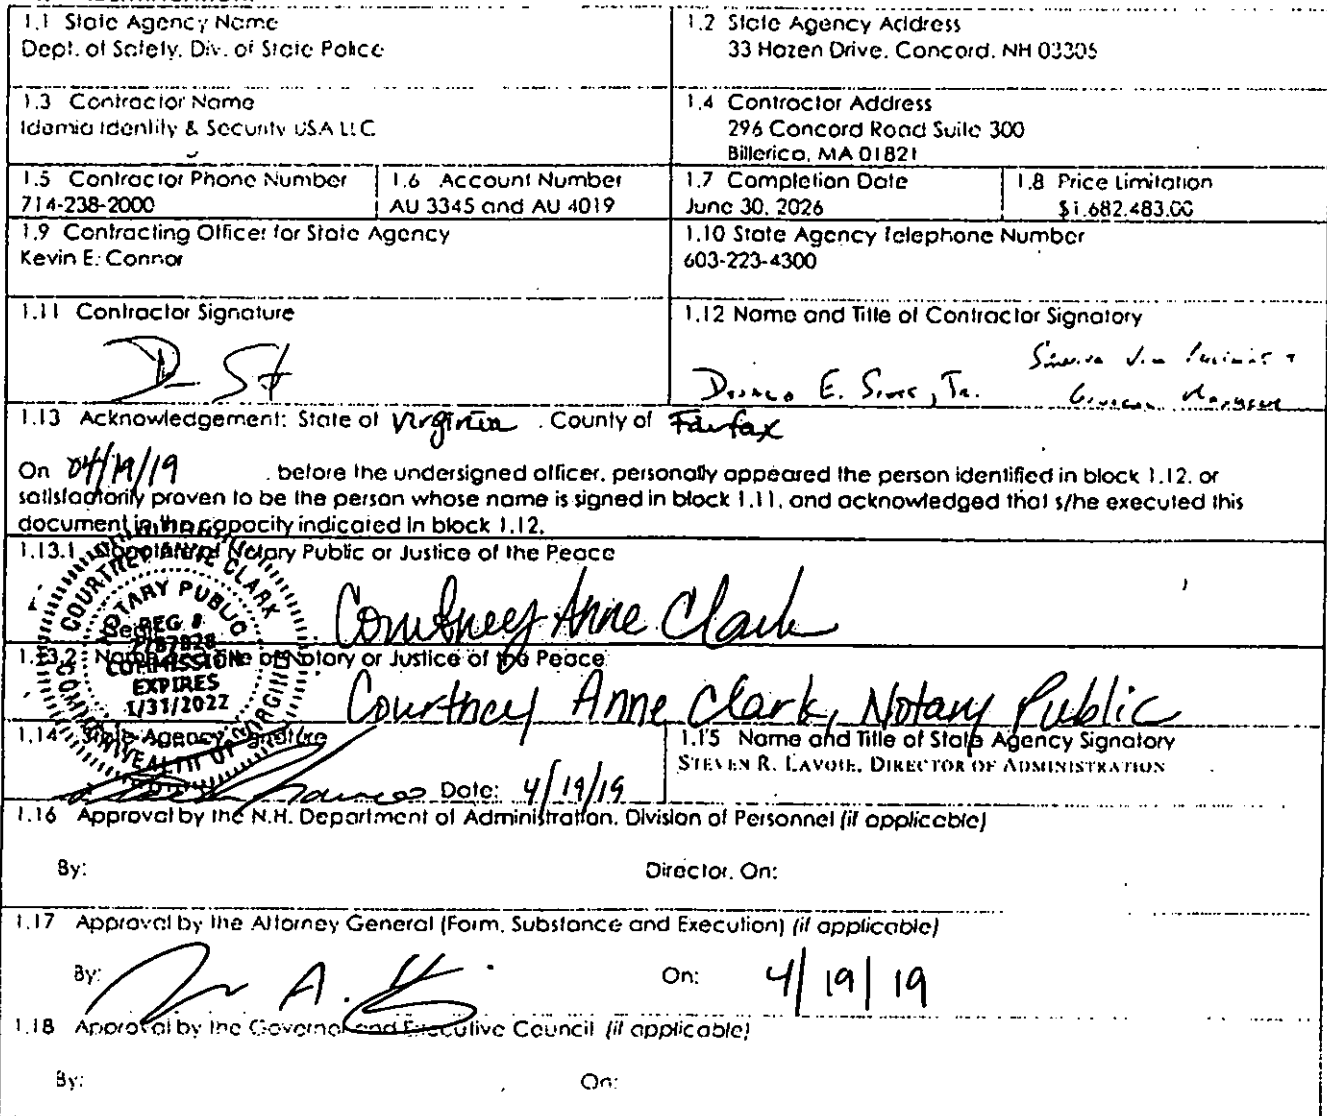 1.1 State Agency Name
Dept. of Safety, Div. of State Police
1.2 State Agency Address
33 Hazen Drive, Concord, NH 03305
1.3 Contractor Name
Idemia Identity & Security USA LLC
1.4 Contractor Address
296 Concord Road Suite 300
Billerica, MA 01821
1.5 Contractor Phone Number
714-238-2000
1.6 Account Number
AU 3345 and AU 4019
1.7 Completion Date
June 30, 2026
1.8 Price Limitation
$1,682,483.00
1.9 Contracting Officer for State Agency
Kevin E. Connor
1.10 State Agency Telephone Number
603-223-4300
1.11 Contractor Signature
1.12 Name and Title of Contractor Signatory
E. Jr.
1.13 Acknowledgement: State of Virginia . County of Fairfax
On 04/19/19 , before the undersigned officer, personally appeared the person identified in block 1.12, or
satisfactorily proven to be the person whose name is signed in block 1.11, and acknowledged that s/he executed this
document in the capacity indicated in block 1.12.
1.13.1 Notary Public or Justice of the Peace
Courtney Anne Clark
COURTNEY ANNE CLARK
NOTARY PUBLIC
REG. #
COMMISSION
EXPIRES
1/31/2022
COMMONWEALTH OF VIRGINIA
1.13.2 Name and Title of Notary or Justice of the Peace
Courtney Anne Clark, Notary Public
1.14 State Agency Signature
Date: 4/19/19
1.15 Name and Title of State Agency Signatory
STEVEN R. LAVOIE, DIRECTOR OF ADMINISTRATION
1.16 Approval by the N.H. Department of Administration, Division of Personnel (if applicable)
By: Director, On:
1.17 Approval by the Attorney General (Form, Substance and Execution) (if applicable)
By: On: 4/19/19
1.18 Approval by the Governor and Executive Council (if applicable)
By: On: